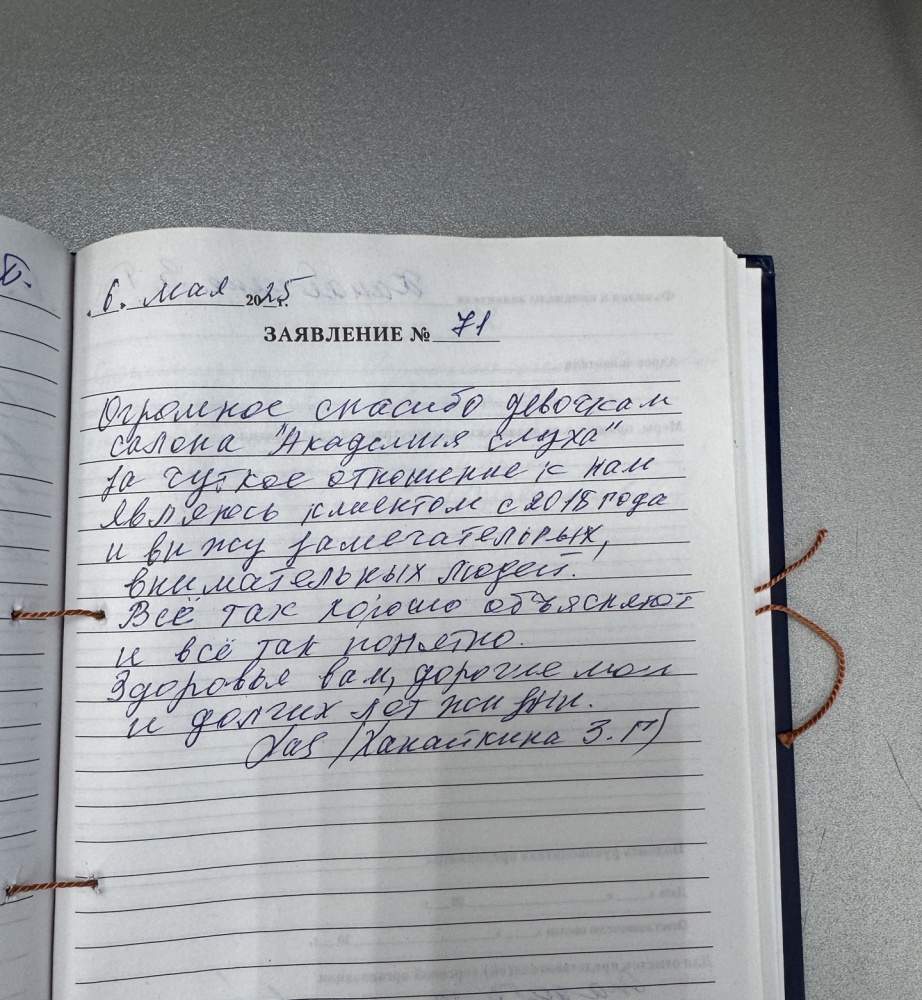 6. Мая 2025 г.
ЗАЯВЛЕНИЕ № 71
Огромное спасибо девочкам
салона "Академия слуха"
за чуткое отношение к нам
Являюсь клиентом с 2018 года
и вижу замечательных,
внимательных людей.
Всё так хорошо объясняют
и всё так понятно.
Здоровья вам, дорогие мои
и долгих лет жизни.
(Ханайкина З.П)